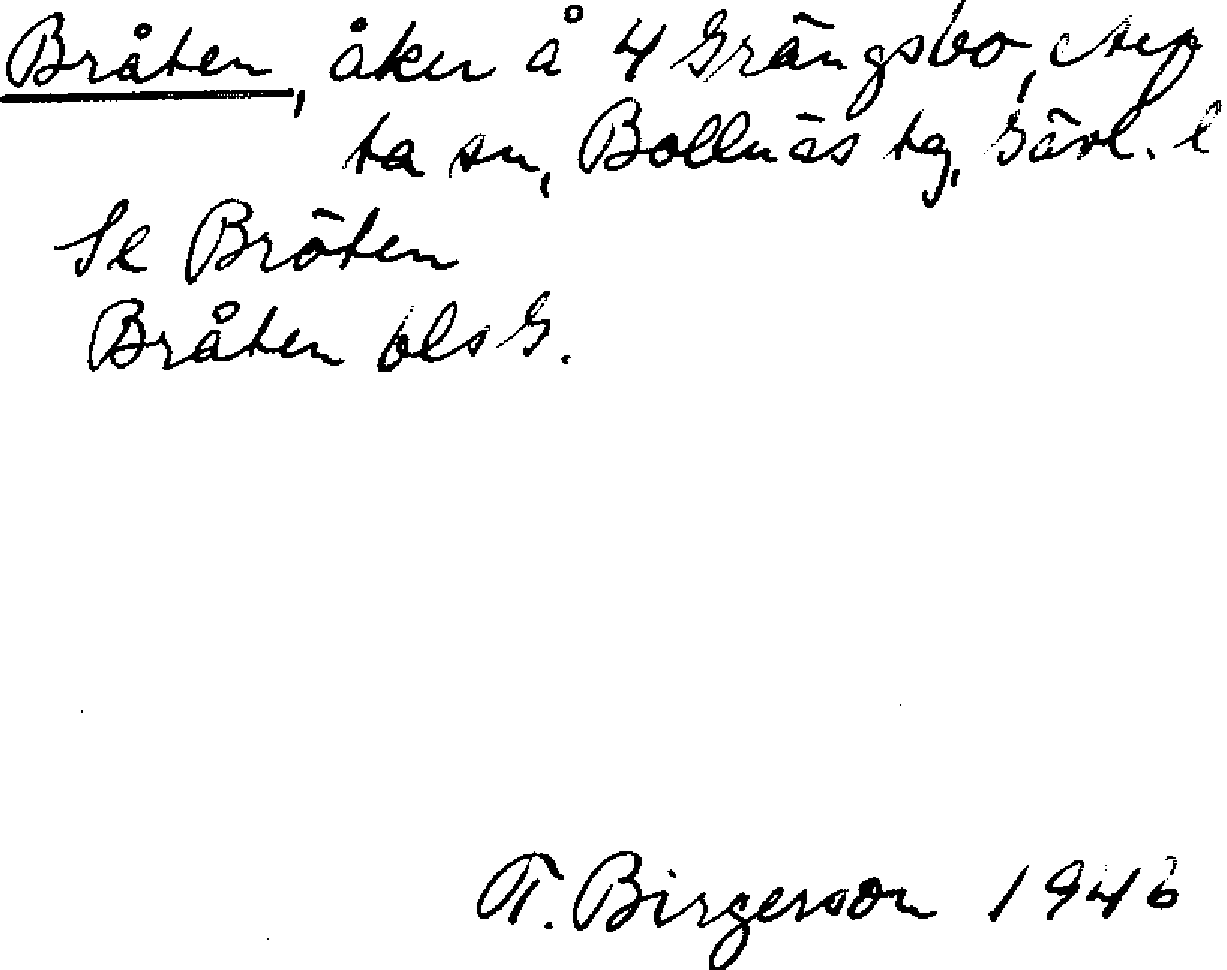 Bråten, åker å 4 Grängsbo, Alf
ta sn, Bollnäs tg, Gävl. l
Se Bröten
Bråten bls G.
T. Birgerson 1946